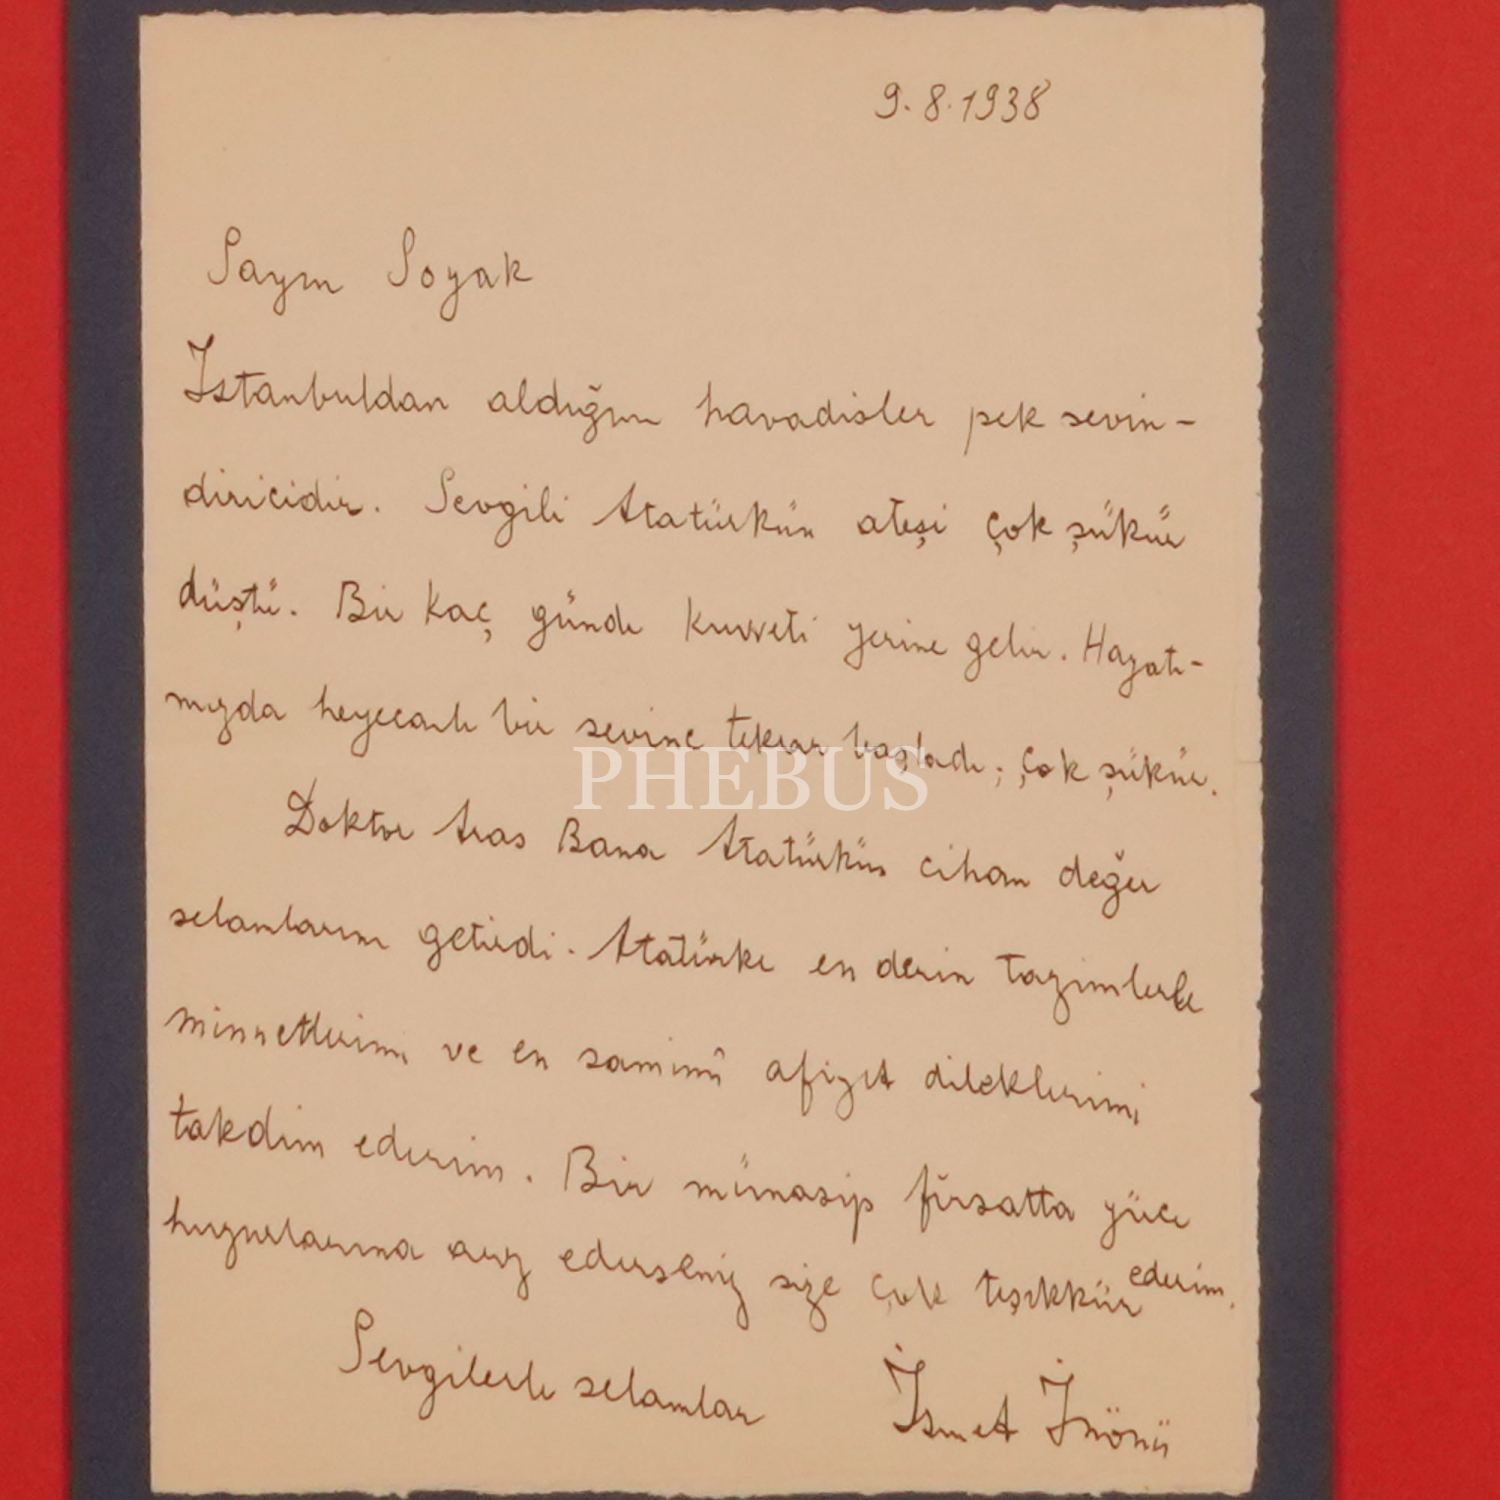 9.8.1938
Sayın Soyak
İstanbuldan aldığım havadisler pek sevin-
diricidir. Sevgili Atatürkün ateşi çok şükür
düştü. Bir kaç günde kuvveti yerine gelir. Hayatı-
mızda heyecanlı bir sevinc tekrar başladı; çok şükür.
PHEBUS
Doktor Aras Bana Atatürkün cihan değer
selamlarını getirdi. Atatürke en derin tazimlerle
minnetlerimi ve en samimî afiyet dileklerimi
takdim ederim. Bir münasip fırsatta yüce
huzurlarına arz ederseniz size çok teşekkür ederim.
Sevgilerle selamlar İsmet İnönü